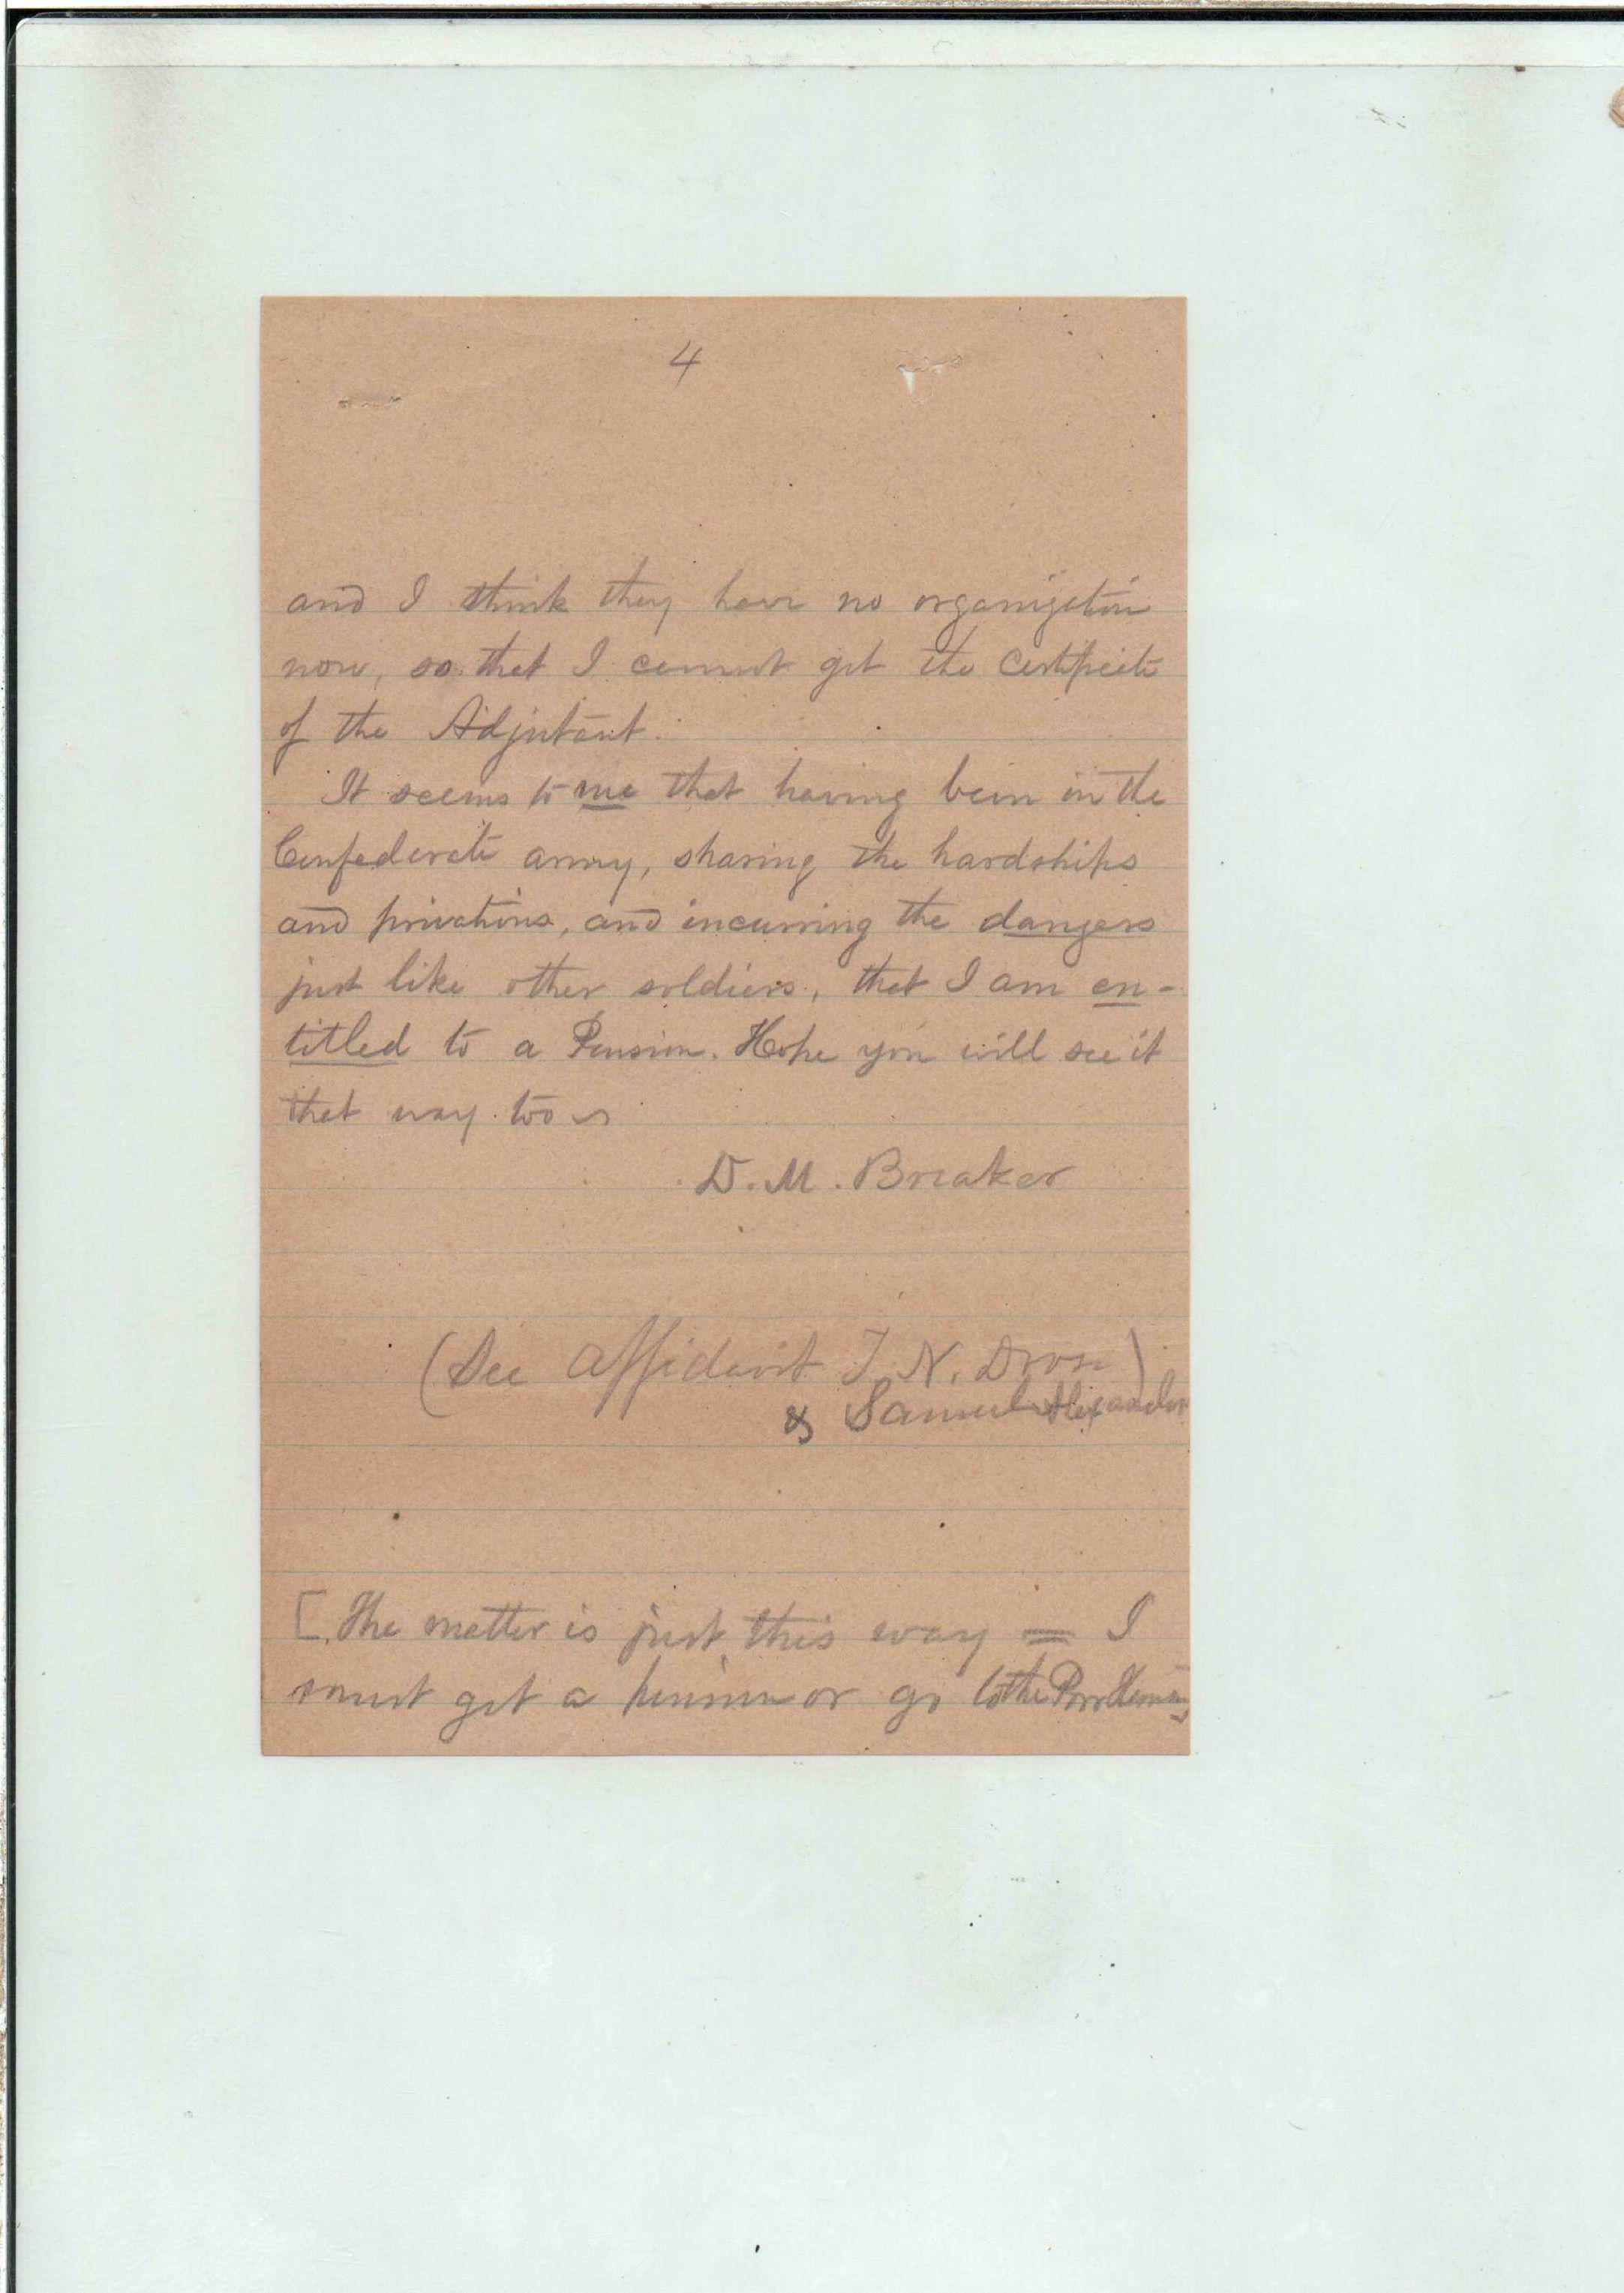 4
and I think they have no organization
now, so that I cannot get the Certificate
of the Adjutant.
It seems to me that having been in the
Confederate army, sharing the hardships
and privations, and incurring the dangers
just like other soldiers, that I am en-
titled to a Pension. Hope you will see it
that way too
D. M. Breaker
(See Affidavit N.
& Samuel Alexander
[The matter is just this way = I
must get a pension or go to the Poor